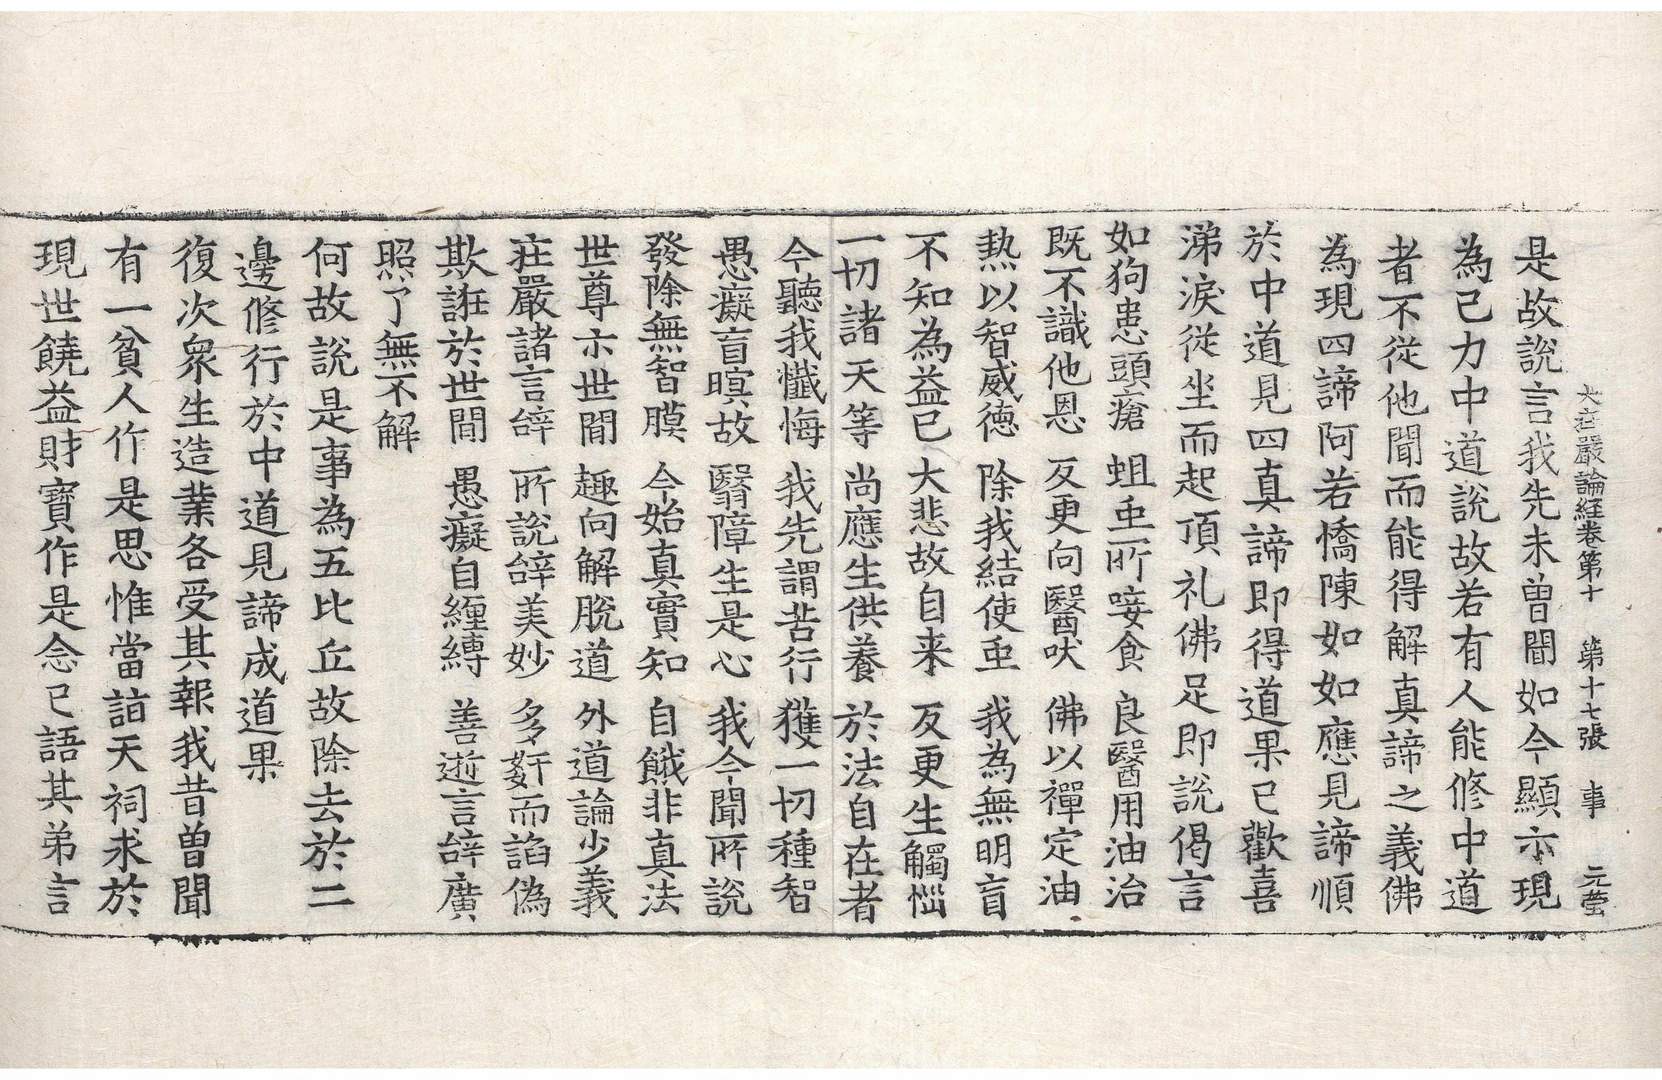 大莊嚴論經卷第十　第十七張　事　元瑩
是故說言我先未曾聞如今顯示現
為己力中道說故若有人能修中道
者不從他聞而能得解真諦之義佛
為現四諦阿若憍陳如如應見諦順
於中道見四真諦即得道果已歡喜
涕淚從坐而起頂礼佛足即說偈言
如狗患頭瘡　蛆虫所唼食　良醫用油治
既不識他恩　反更向醫吠　佛以禪定油
熱以智威德　除我結使虫　我為無明盲
不知為益已　大悲故自来　反更生觸惱
一切諸天等　尚應生供養　於法自在者
今聽我懺悔　我先謂苦行　獲一切種智
愚癡盲瞑故　翳障生是心　我今聞所說
發除無智膜　今始真實知　自餓非真法
世尊示世間　趣向解脫道　外道論少義
莊嚴諸言辞　所說辞美妙　多姧而諂偽
欺誑於世間　愚癡自纏縛　善逝言辞廣
照了無不解
何故說是事為五比丘故除去於二
邊修行於中道見諦成道果
復次衆生造業各受其報我昔曽聞
有一貧人作是思惟當詣天祠求於
現世饒益財寶作是念已語其弟言